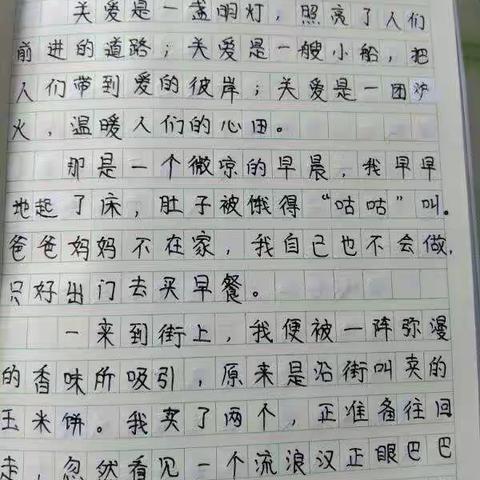 关爱是一盏明灯，照亮了人们
前进的道路；关爱是一艘小船，把
人们带到爱的彼岸；关爱是一团炉
火，温暖人们的心田。
那是一个微凉的早晨，我早早
地起了床，肚子被饿得“咕咕”叫。
爸爸妈妈不在家，我自己也不会做，
只好出门去买早餐。
一来到街上，我便被一阵弥漫
的香味所吸引，原来是沿街叫卖的
玉米饼。我买了两个，正准备往回
走，忽然看见一个流浪汉正眼巴巴